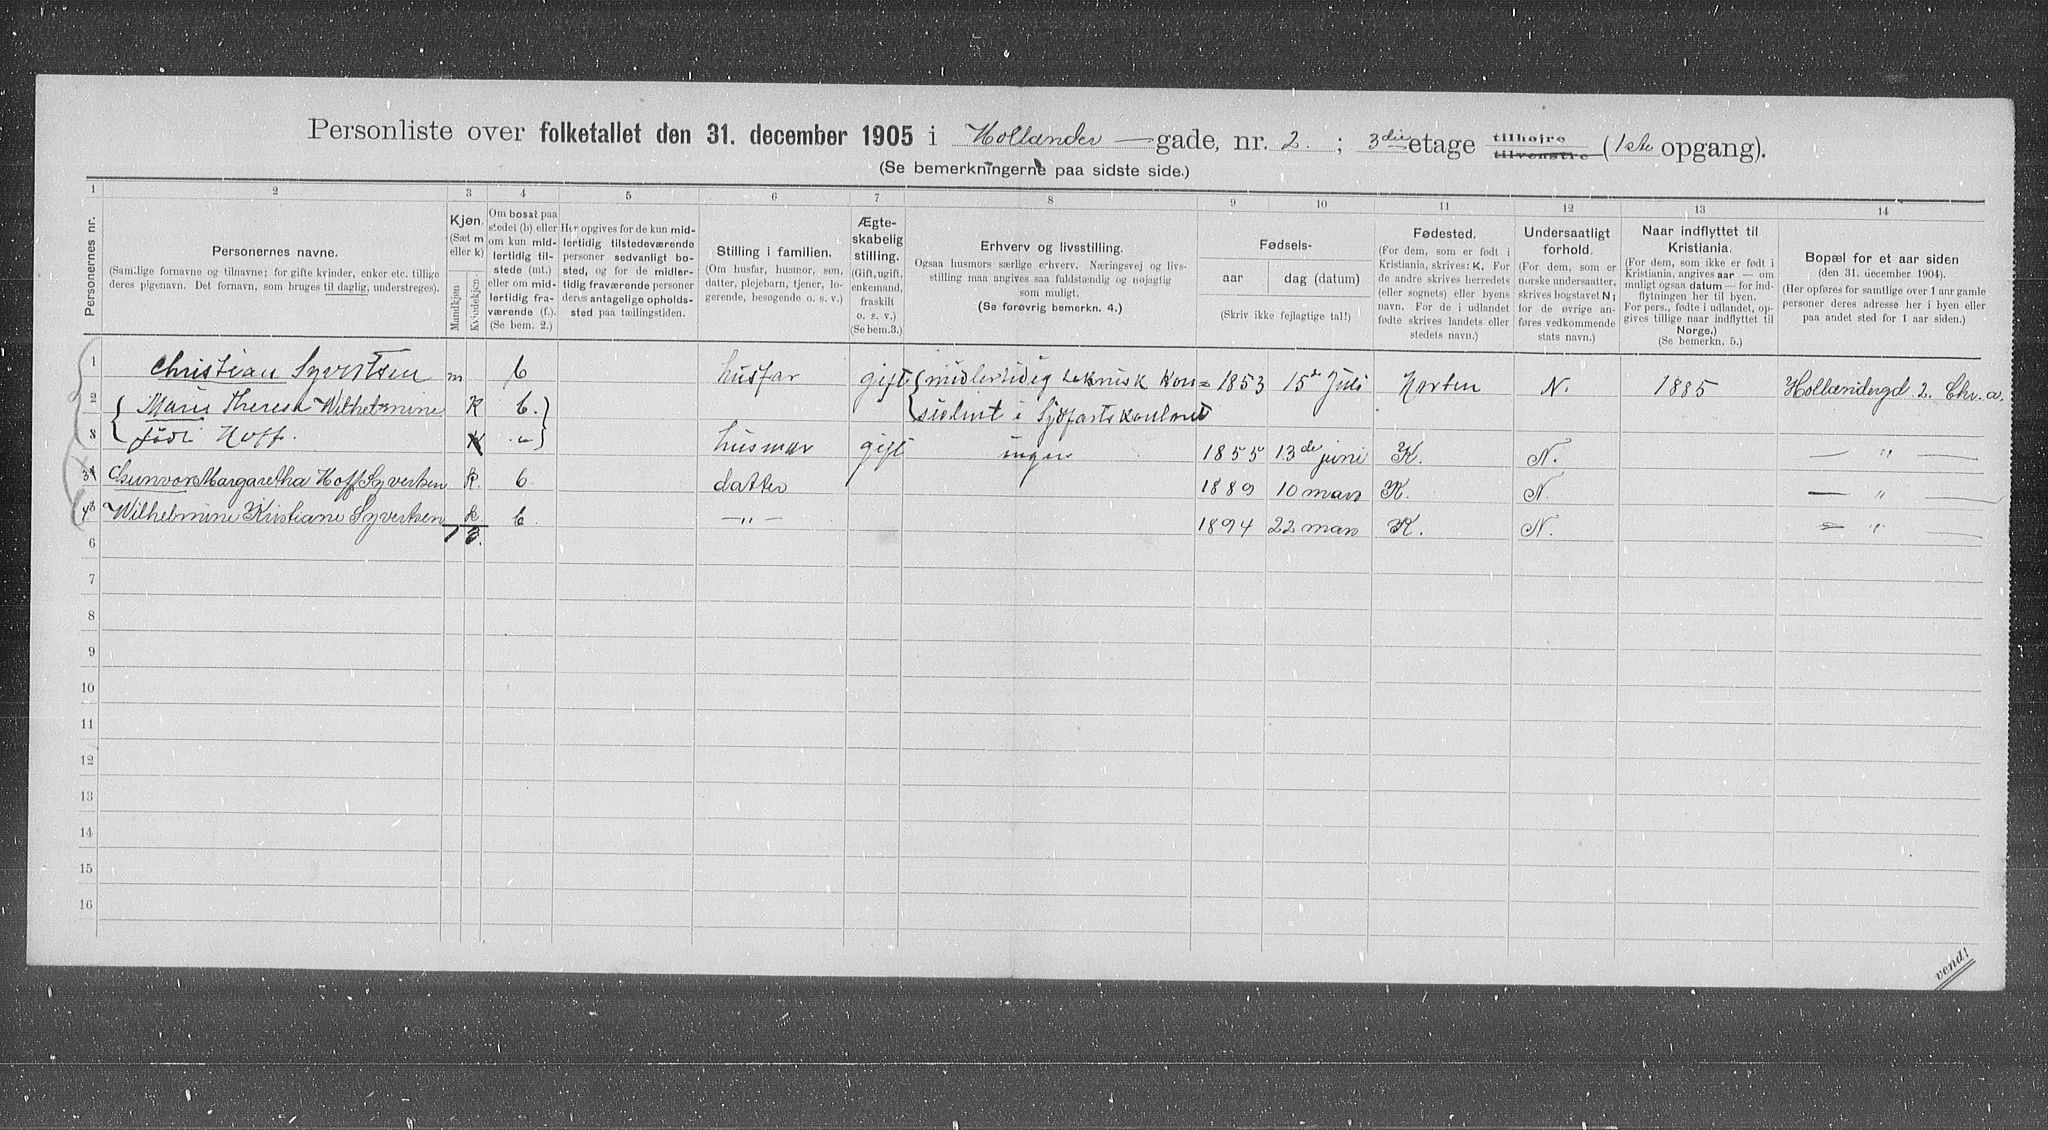 Personliste over folketallet den 31. december 1905 i Hollænder — gade, nr. 2. ; 3die etage tilhøjre tilvenstre (1ste opgang).
(Se bemerkningerne paa sidste side.)
1 2 3 4 5 6 7 8 9 10 11 12 13 14
Personernes nr.
Personernes navne.
(Samtlige fornavne og tilnavne; for gifte kvinder, enker etc. tillige
deres pigenavn. Det fornavn, som bruges til daglig, understreges).
Kjøn.
(Sæt m
eller k)
Mandkjøn
Kvindekjøn.
Om bosat paa
stedet (b) eller
om kun mid-
lertidig til-
stede (mt.)
eller om mid-
lertidig fra-
værende (f.)
(Se bem. 2.)
Her opgives for de kun mid-
lertidig tilstedeværende
personer sedvanlig bo-
sted, og for de midler-
tidig fraværende personer
deres antagelige opholds-
sted paa tællingstiden.
Stilling i familien.
(Om husfar, husmor, søn,
datter, plejebarn, tjener, lo-
gerende, besøgende o. s. v.)
Ægte-
skabelig
stilling.
(Gift, ugift,
enkemand,
fraskilt
o. s. v.)
(Se bem.3.)
Erhverv og livsstilling.
Ogsaa husmors særlige erhverv. Næringsvej og livs-
stilling maa angives saa fuldstændig og nøjagtig
som muligt.
(Se forøvrig bemerkn. 4.)
Fødsels-
aar
dag (datum)
(Skriv ikke fejlagtige tal!)
Fødested.
(For dem, som er født i
Kristiania, skrives: K. For
de andre skrives herredets
(eller sognets) eller byens
navn. For de i udlandet
fødte skrives landets eller
stedets navn.)
Undersaatligt
forhold.
(For dem, som er
norske undersaatter,
skrives bogstavet N;
for de øvrige an-
føres vedkommende
stats navn.)
Naar indflyttet til
Kristiania.
(For dem, som ikke er født i
Kristiania, angives aar — om
muligt ogsaa datum — for ind-
flytningen her til byen.
For pers., fødte i udlandet, op-
gives tillige naar indflyttet til
Norge.)
(Se bemerkn. 5.)
Bopæl for et aar siden
(den 31. december 1904).
(Her opføres for samtlige over 1 aar gamle
personer deres adresse her i byen eller
paa andet sted for 1 aar siden.)
1 Christian Syvertsen m b husfar gift midlertidig teknisk kon= 1853 15de Juli Horten N. 1885 Hollændergd. 2. Chr.a.
2 Marie Theresa Wilhelmine K b. sulent i Sjøfartskontoret
3 født Hoff. K „ husmor gift ingen 1855 13de juni K. N. — „ —
3 4 Gunvor Margaretha Hoff Syvertsen K. b datter 1889 10 mars K. N. — „ —
4 5 Wilhelmine Kristiane Syvertsen k b. — „ — 1894 22 mars K. N. — „ —
6 1 3.
7
8
9
10
11
12
13
14
15
16
vend!